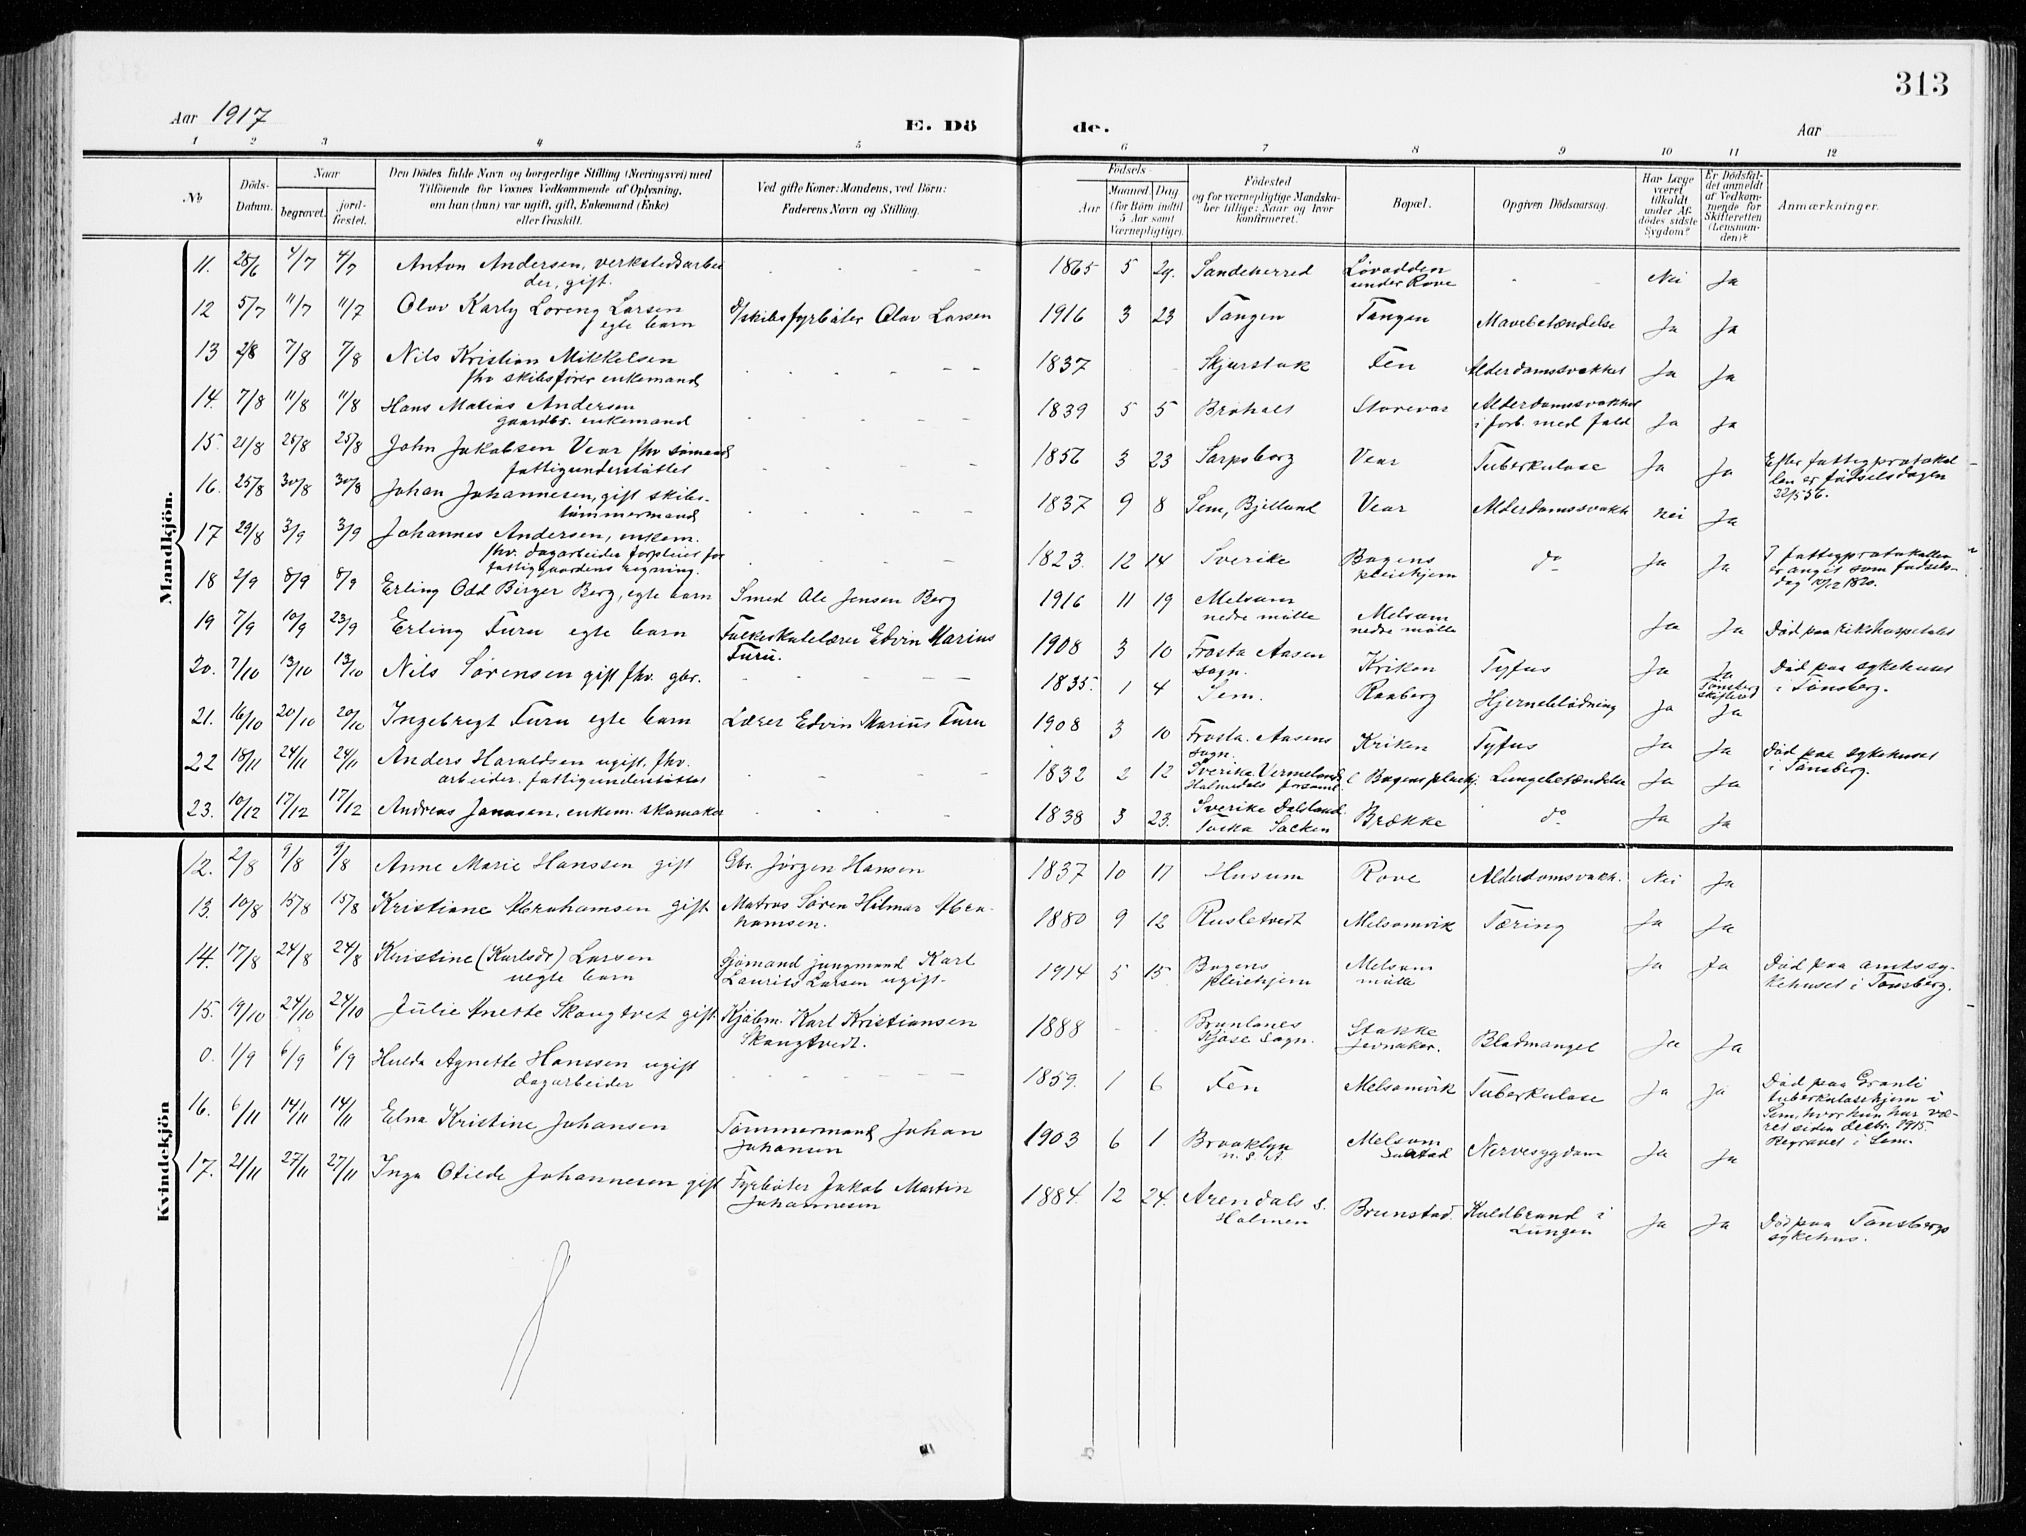 313
Aar 1917
E. Dö de.
Aar
1 2 3 4 5 6 7 8 9 10 11 12
No
Döds-Datum.
Naar
begravet.
jord-fæstet.
Den Dödes fulde Navn og borgerlige Stilling (Næringsvei) med
Tilföiende for Voxnes Vedkommende af Oplysning,
om han (hun) var ugift, gift, Enkemand (Enke)
eller fraskilt.
Ved gifte Koner: Mandens, ved Börn:
Faderens Navn og Stilling.
Födsels-
Aar
Maaned. Dag.
(for Börn indtil
5 Aar samt
Værnepligtige).
Födested
og for værnepligtige Mandska-
ber tillige: Naar og hvor
konfirmeret.
Bopæl.
Opgiven Dödsaarsag.
Har Læge
været
tilkaldt
under Af-
dödes sidste
Sygdom?
Er Dödsfal-
det anmeldt
af Vedkom-
mende for
Skifteretten
(Lensman-
den)?
Anmærkninger.
Mandkjön.
11. 28/6 4/7 4/7 Anton Andersen, verkstedsarbei 1865 5 29. Sandeherred Løvodden Nei Ja
der, gift. under Rove
12 5/7 11/7 11/7 Olav Karly Loreng Larsen skibsfyrbøter Olav Larsen 1916 3 23 Tangen Tangen Mavebetændelse Ja Ja
egte barn
13 2/8 7/8 7/8 Nils Kristian Mikkelsen 1837 Fen Alderdomssvakhet Ja Ja
fhv skibsfører enkemand
14. 7/8 11/8 11/8 Hans Matias Andersen 1839 5 5 Storevar Alderdomssvakhet Ja Ja
gaardbr. enkemand i forb. med fald
15. 21/8 25/8 25/8 John Jakobsen Vear fhv sømand 1856 3 23 Sarpsborg Vear Tuberkulose Ja Ja Efter fattigprotokol-
fattigunderstøttet len er fødselsdagen
22/5 56.
16. 25/8 30/8 30/8 Johan Johannesen, gift skibs- 1837 9 8 Sem, Bjelland Vear Alderdomssvakh nei Ja
tømmermand
17 29/8 3/9 3/9 Johannes Andersen, enkem. 1823. 12 14 Sverike Bogens do Ja Ja I fattigprotokollen
fhv. dagarbeider forpleiet for pleiehjem er angit som fødsels-
fattiggaardens regning. dag 10/12 1820.
18 2/9 8/9 8/9 Erling Odd Birger Berg, egte barn Smed Ole Jensen Berg 1916 11 19 Melsom Melsom Ja Ja Død paa rikshospitalet
nedre mølle nedre mølle
19 7/9 10/9 23/9 Erling Furu egte barn Folkeskolelærer Edvin Marius 1908 3 10 Frosta Aasen Kriken Tyfus Ja Ja Død paa sykehuset
Furu. sogn. Tønsberg skifteret i Tønsberg.
20. 7/10 13/10 13/10 Nils Sørensen gift fhv. gbr. 1835. 1 4 Sem. Raaberg Hjerneblødning Ja Ja
21. 16/10 20/10 20/10 Ingebregt Furu egte barn Lærer Edvin Marius Furu 1908 3 10 Frosta. Aasens Kriken Tyfus Ja Ja Død paa sykehuset
sogn. i Tønsberg.
22 18/11 24/11 24/11 Anders Haraldsen ugift, fhv. 1832 2 12 Sverike Vermeland Bogens pleiehj. Lungebetændelse Ja Ja
arbeider. fattigunderstøttet Holmedals forsaml.
23. 10/12 17/12 17/12 Andreas Jonasen, enkem. skomaker 1838 3 23. Sverike Dalsland Brække do Ja Ja
Kvindekjön
12. 2/8 9/8 9/8 Anne Marie Hanssen gift Gbr. Jørgen Hansen 1837 10 17 Husum Rove Alderdomssvakh. Nei Ja
13. 10/8 15/8 15/8 Kristiane Abrahamsen gift Matros Søren Hilmar Abra- 1880 9 12 Rusletvedt Melsomvik Tæring Ja Ja
hamsen.
14. 17/8 24/8 24/8 Kristine (Karlsdr) Larsen Sjømand jungmand Karl 1914 5 15. Bogens Melsom Ja Ja Død paa amtssy-
uegte barn Laurits Larsen ugift. pleiehjem mølle kehuset i Tønsberg.
15. 19/10 24/10 24/10 Julie Anette Skougtvet gift Kjøbm. Karl Kristiansen 1888 Brunlanes Stokke Blodmangel Ja Ja
Skougtvedt. Kjøse sogn. Jernaker.
0. 1/9 6/9 6/9 Hulda Agnette Hanssen ugift 1859. 1 6 Fen Melsomvik Tuberkulose Ja Ja Død paa Granli
dagarbeider tuberkulosehjem i
Sem, hvor hun har væ-
ret siden decbr. 1915.
Begravet i Sem.
16. 6/11 14/11 14/11 Edna Kristine Johansen Tømmermand Johan 1903 6 1 Brooklyn Melsom Nervesygdom Ja Ja
Johansen
17. 21/11 27/11 27/11 Inga Otilde Johannesen gift Fyrbøter Jakob Martin 1884. 12 24. Arendals s. Brunstad. Koldbrand i Ja Ja Død paa Tønsbergs
Johannesen Holmen Lungen sykehus.